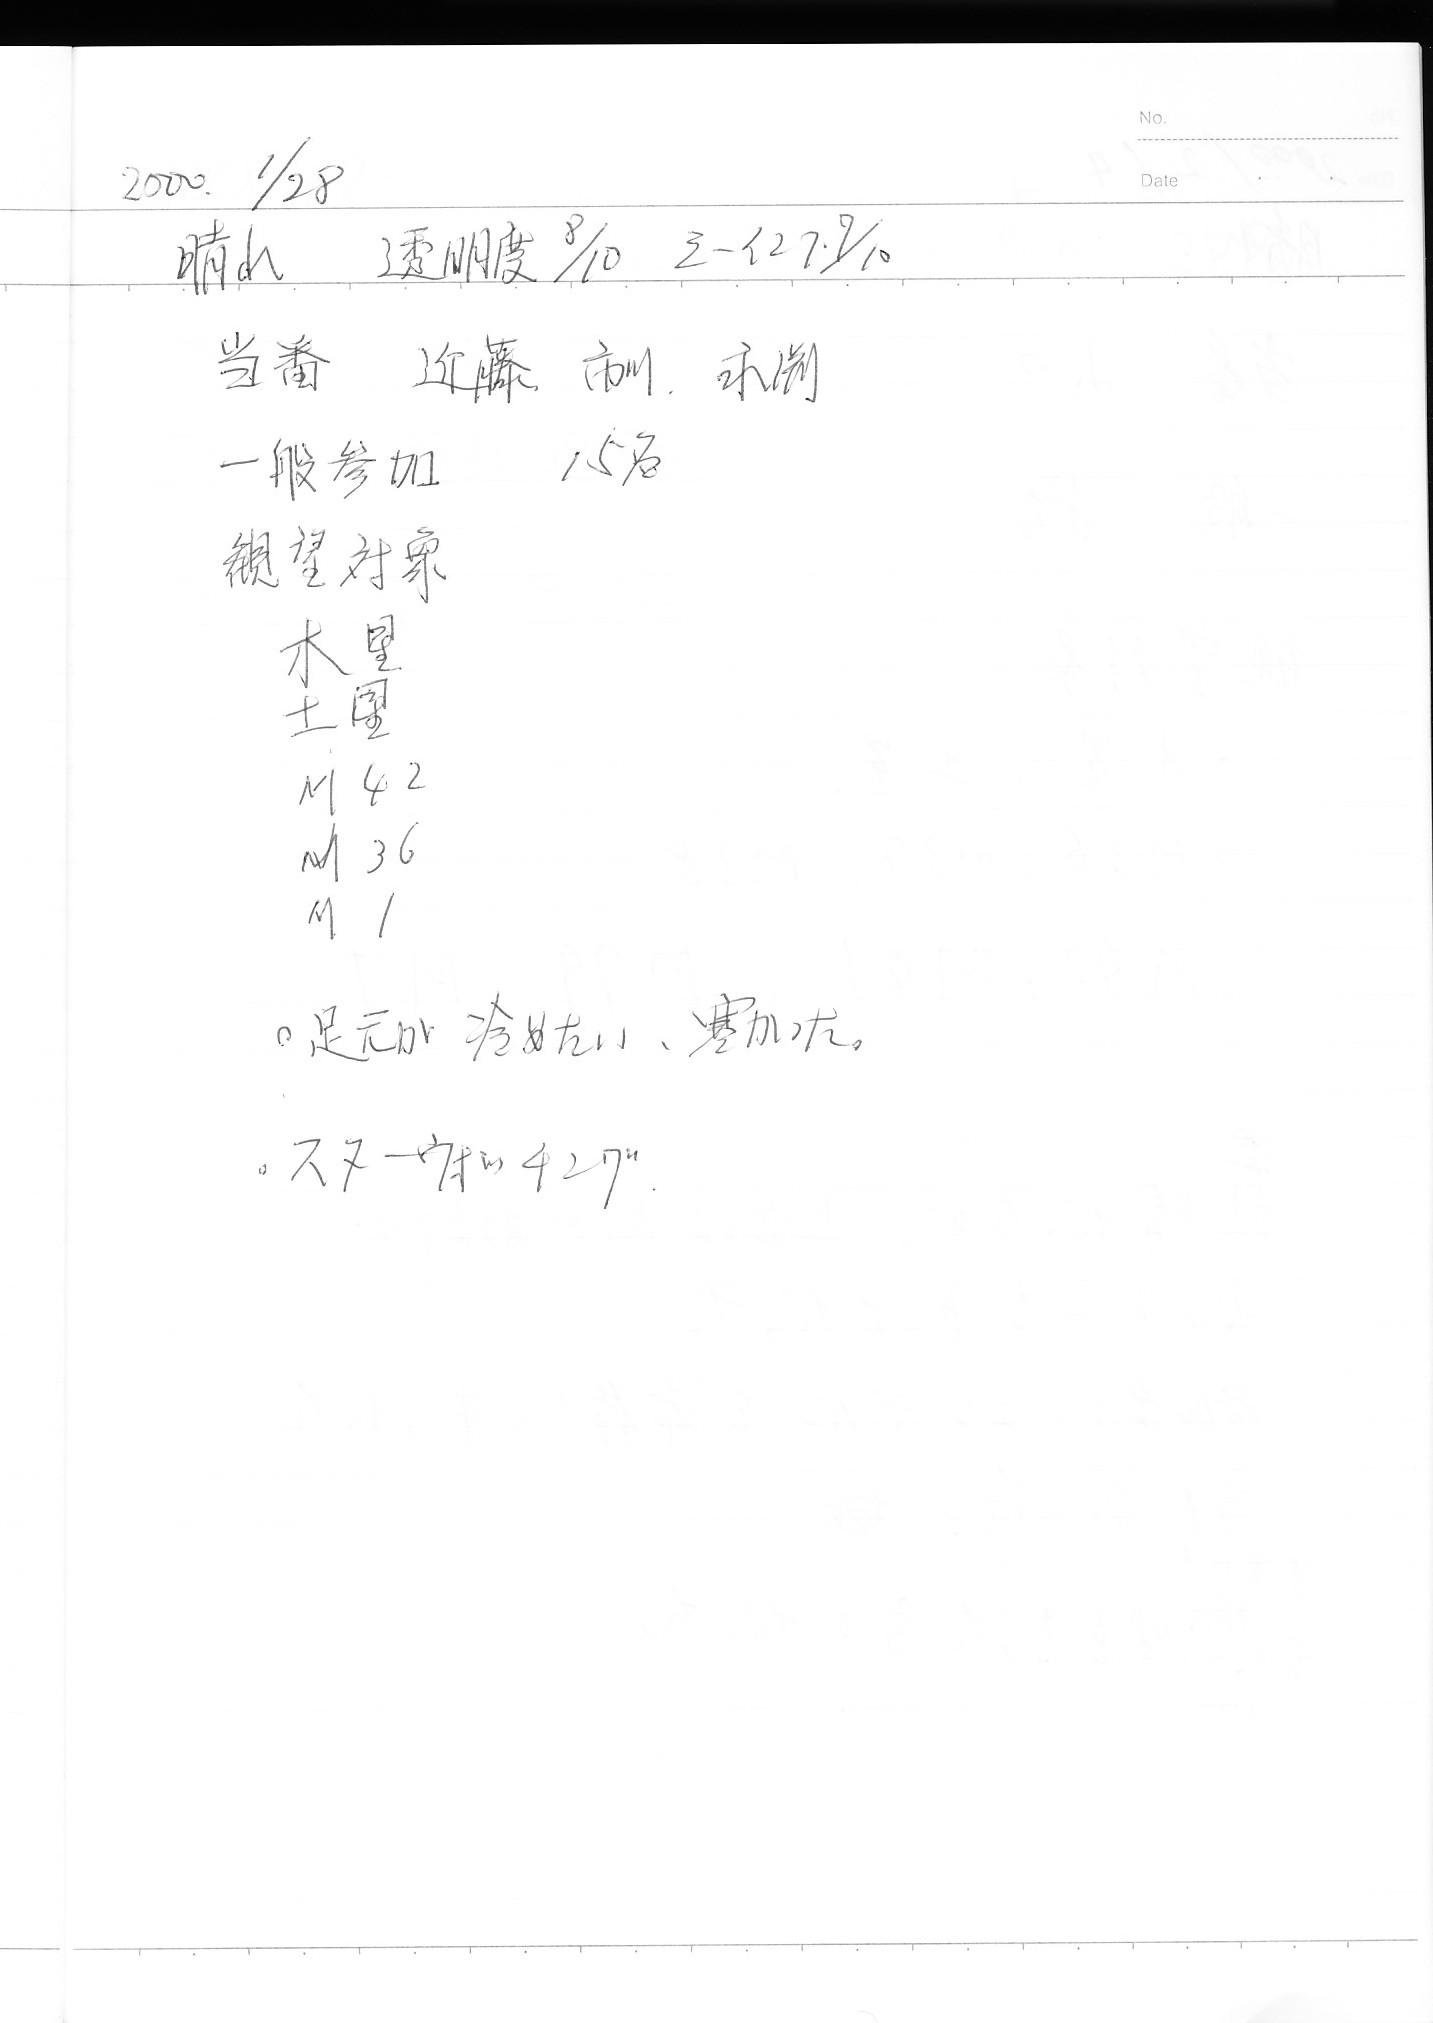 No.
2000. 1/28
Date
晴れ 透明度 8/10 シーイング 7/10
当番 近藤 市川. 永渕
一般参加 15名
観望対象
木星
土星
M 42
M 36
M 1
○足元が 冷めたい、寒かった。
○スターウォッチング.